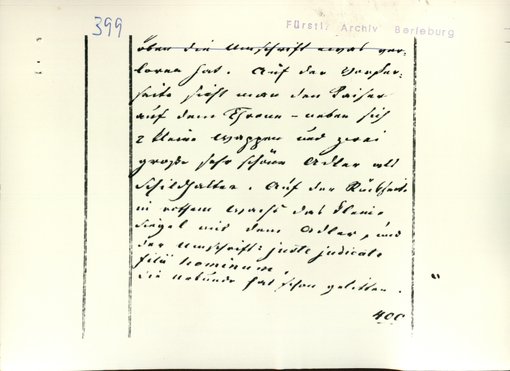 399
Fürstl. Archiv Berleburg
oben die Umschrift etwas ver-
loren hat. Auf der Vorder-
seite sieht man den Kaiser
auf dem Throne – neben sich
2 kleine Wappen und zwei
große sehr schöne Adler als
Schildhalter. Auf der Rückseite
in rothem Wachs das kleine
Siegel mit dem Adler, und
der Umschrift: juste judicate
filii hominum.
Die Urkunde hat schon gelitten.
400